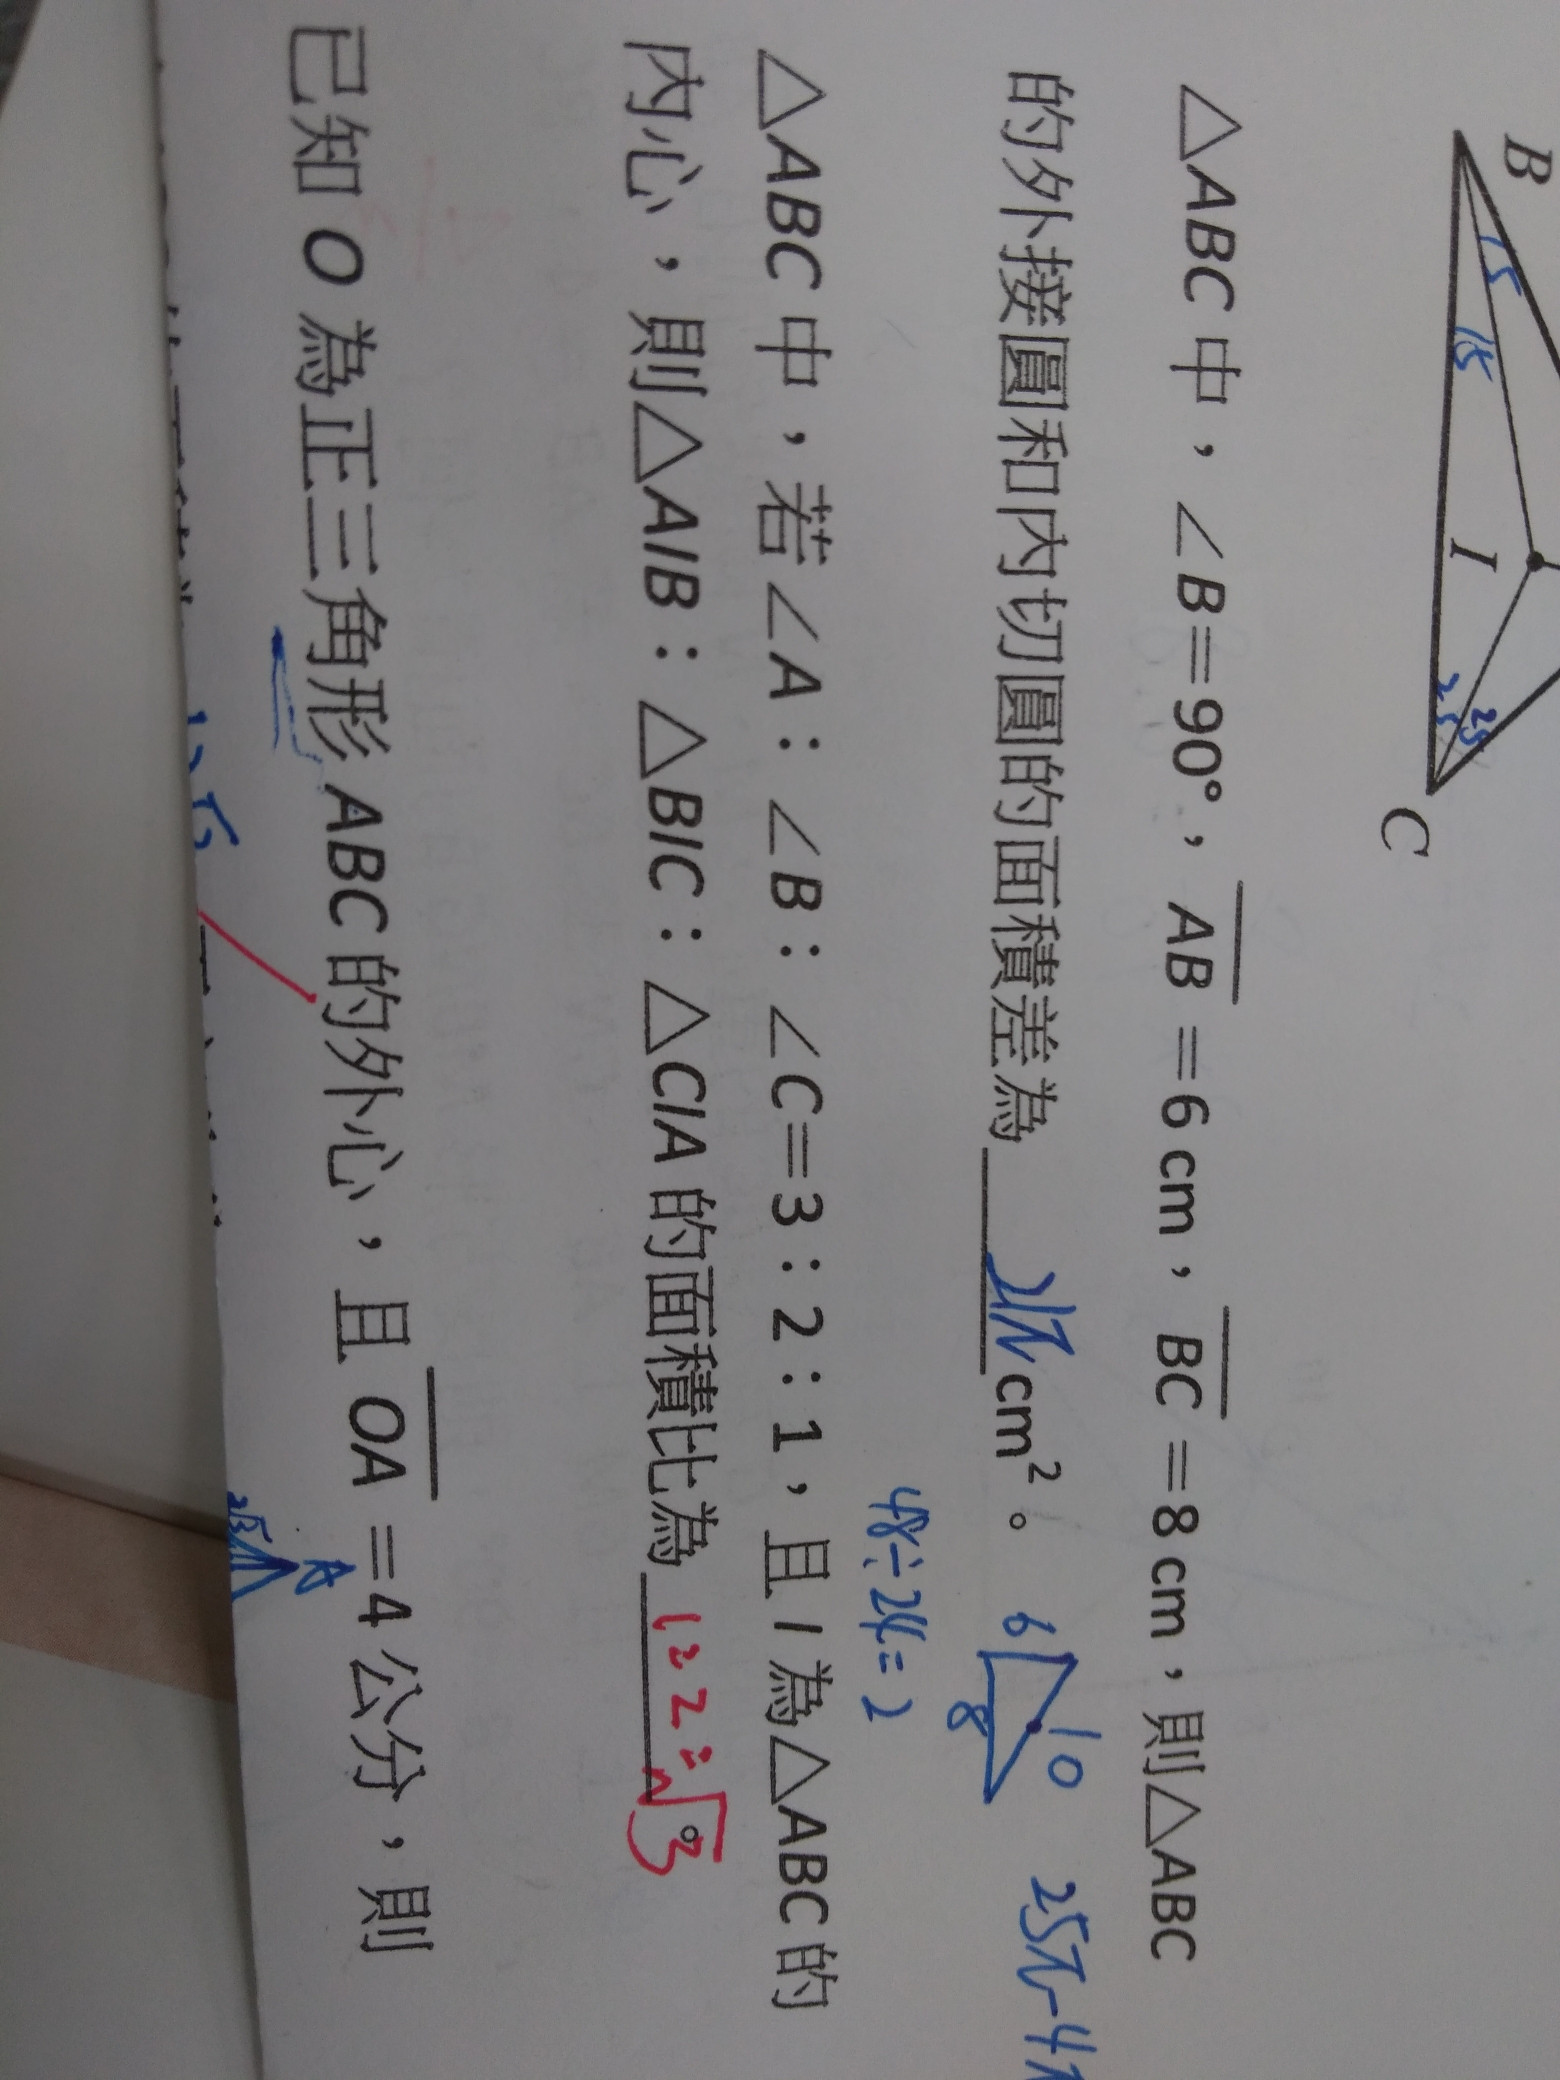 B
15
15
I
25
25
C
△ABC 中，∠B=90°，AB=6 cm，BC=8 cm，則△ABC
的外接圓和內切圓的面積差為 21π cm²。
6
8
10
25π-4π
48÷24=2
△ABC 中，若∠A：∠B：∠C=3：2：1，且 I 為△ABC 的
內心，則△AIB：△BIC：△CIA 的面積比為 1:2:√3。
已知 O 為正三角形 ABC 的外心，且 OA=4 公分，則
A
2√3